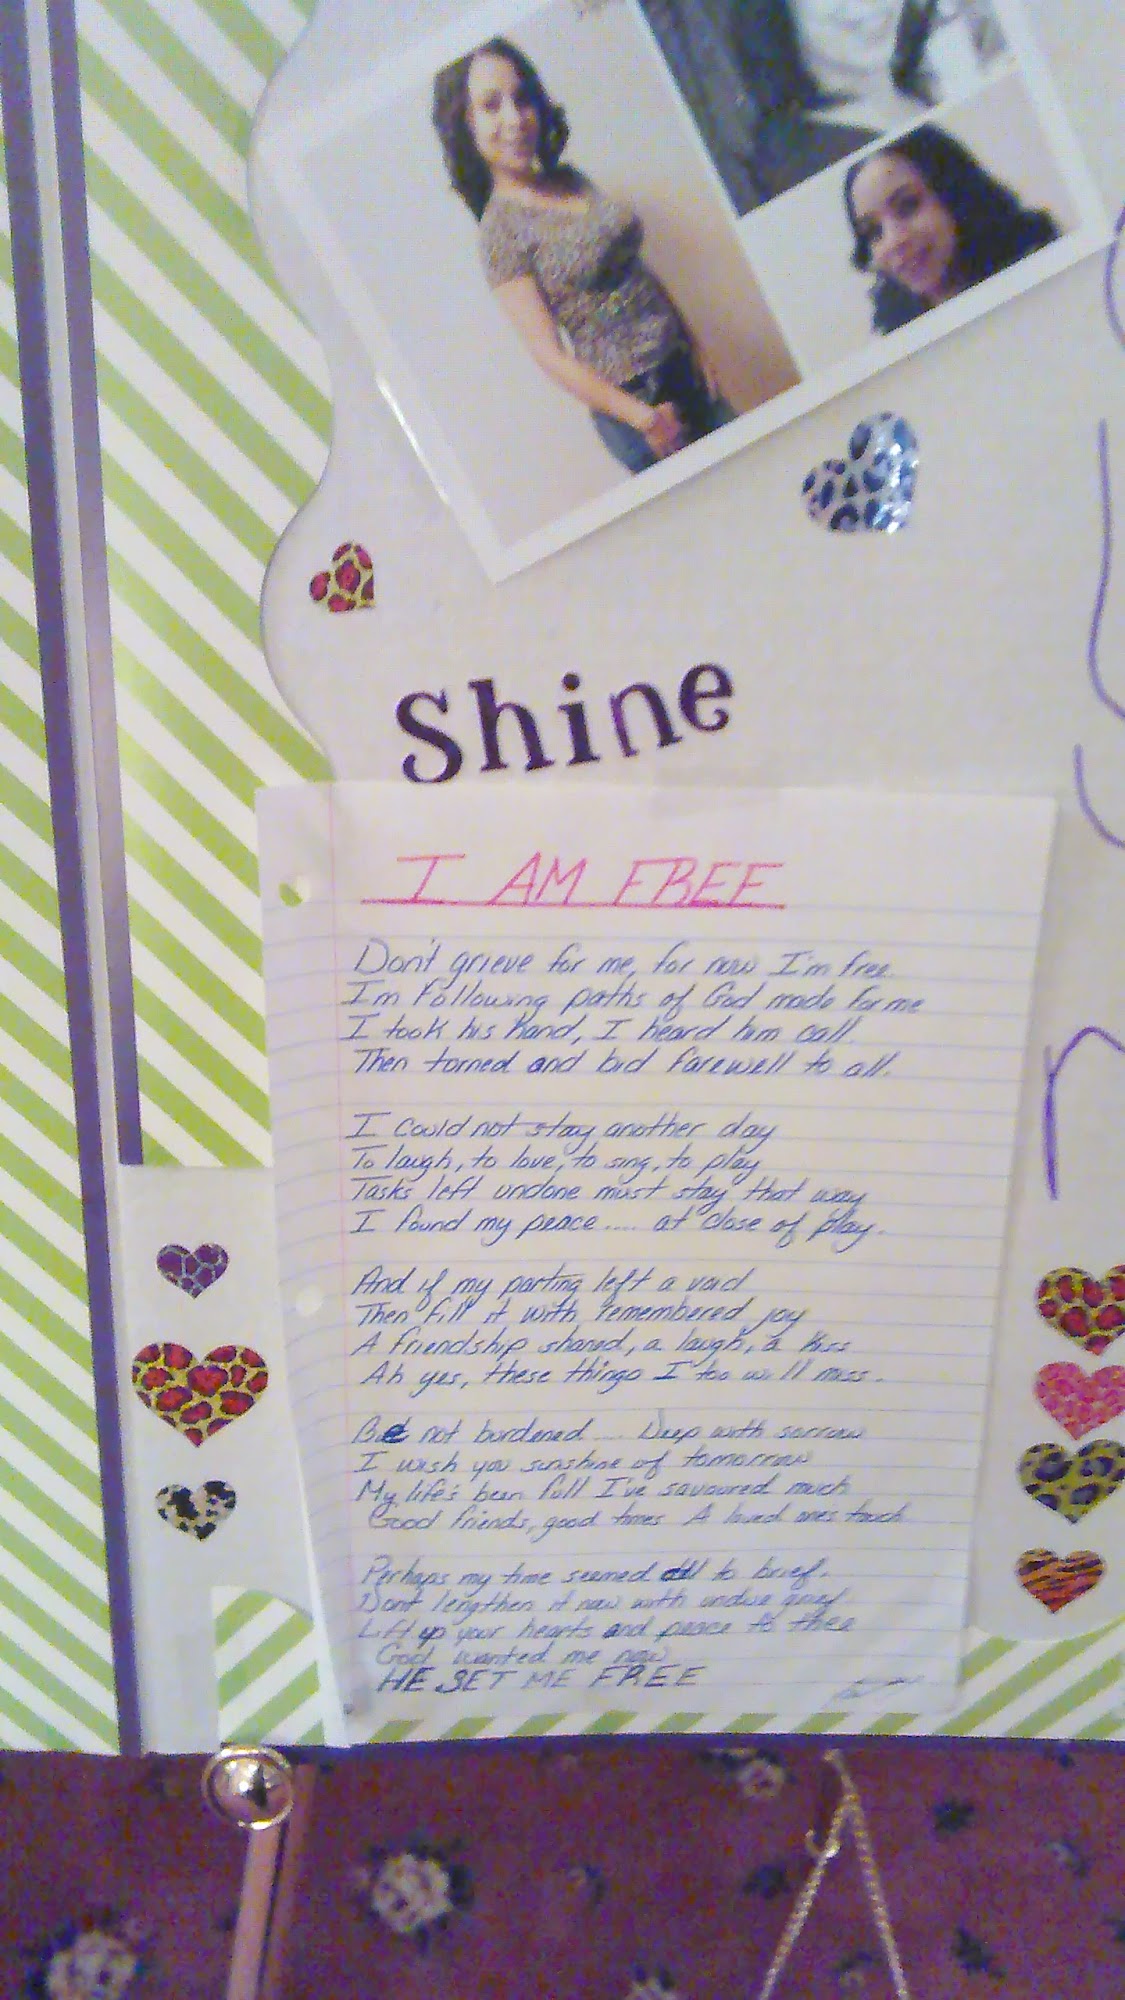 Shine
I AM FREE
Don't grieve for me, for now I'm free
I'm following paths of God made for me
I took his hand, I heard him call.
Then torned and bid farewell to all.
I could not stay another day
To laugh, to love, to sing, to play
Tasks left undone must stay that way
I found my peace.... at close of play.
And if my parting left a void
Then fill it with remembered joy
A friendship shared, a laugh, a kiss
Ah yes, these things I too will miss.
Be not burdened.... Deep with sorrow
I wish you sunshine of tomorrow
My life's been full I've savoured much
Good friends, good times A loved ones touch
Perhaps my time seemed all to brief.
Dont lengthen it now with undue grief
Lift up your hearts and peace to thee
God wanted me now
HE SET ME FREE